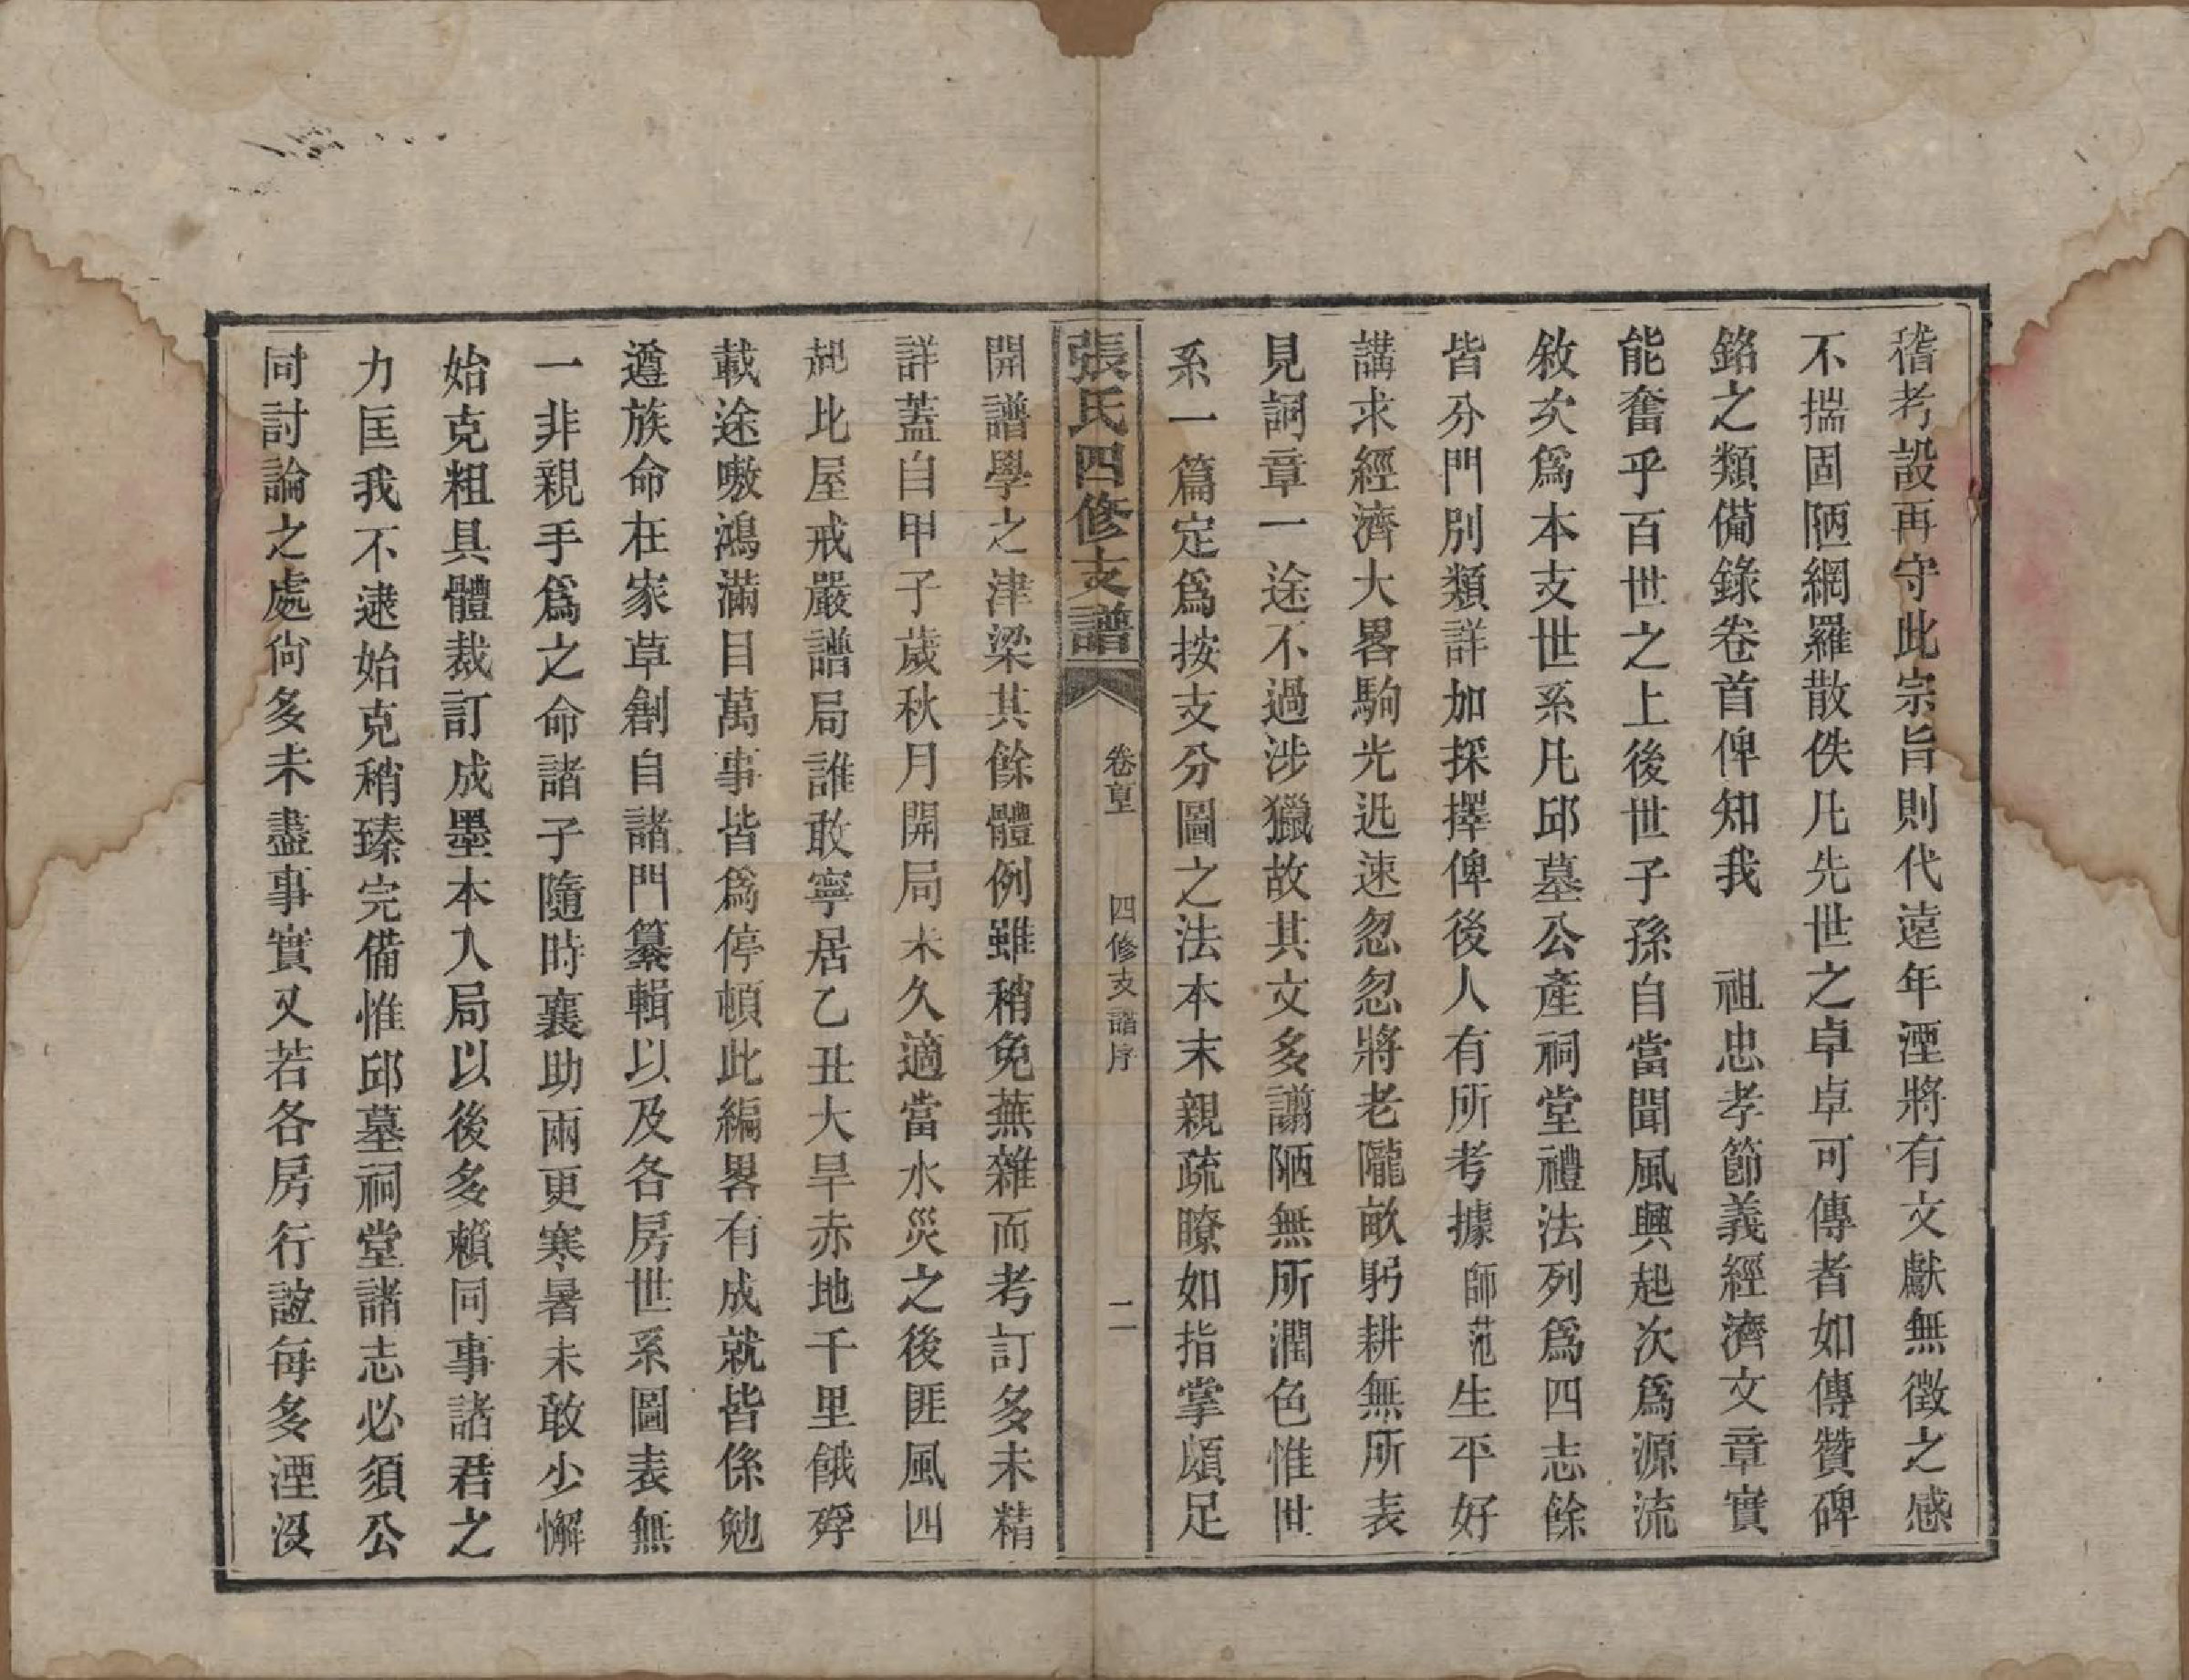 稽考設再守此宗旨則代遠年湮將有文獻無徵之感
不揣固陋網羅散佚凡先世之卓卓可傳者如傳贊碑
銘之類備錄卷首俾知我　祖忠孝節義經濟文章實
能奮乎百世之上後世子孫自當聞風興起次爲源流
敘次爲本支世系凡邱墓公產祠堂禮法列爲四志餘
皆分門別類詳加採擇俾後人有所考據師范生平好
講求經濟大畧駒光迅速忽忽將老隴畝躬耕無所表
見詞章一途不過涉獵故其文多譾陋無所潤色惟世
系一篇定爲按支分圖之法本末親疏瞭如指掌頗足
張氏四修支譜
卷首
四修支譜序
二
開譜學之津梁其餘體例雖稍免蕪雜而考訂多未精
詳蓋自甲子歲秋月開局未久適當水災之後匪風四
起比屋戒嚴譜局誰敢寧居乙丑大旱赤地千里餓殍
載途嗷鴻滿目萬事皆爲停頓此編畧有成就皆係勉
遵族命在家草創自諸門纂輯以及各房世系圖表無
一非親手爲之命諸子隨時襄助兩更寒暑未敢少懈
始克粗具體裁訂成墨本入局以後多賴同事諸君之
力匡我不逮始克稍臻完備惟邱墓祠堂諸志必須公
同討論之處尙多未盡事實又若各房行誼每多湮沒